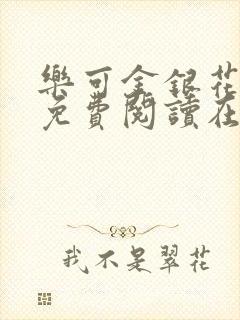 樂可金銀花
免費閱讀在
我不是翠花